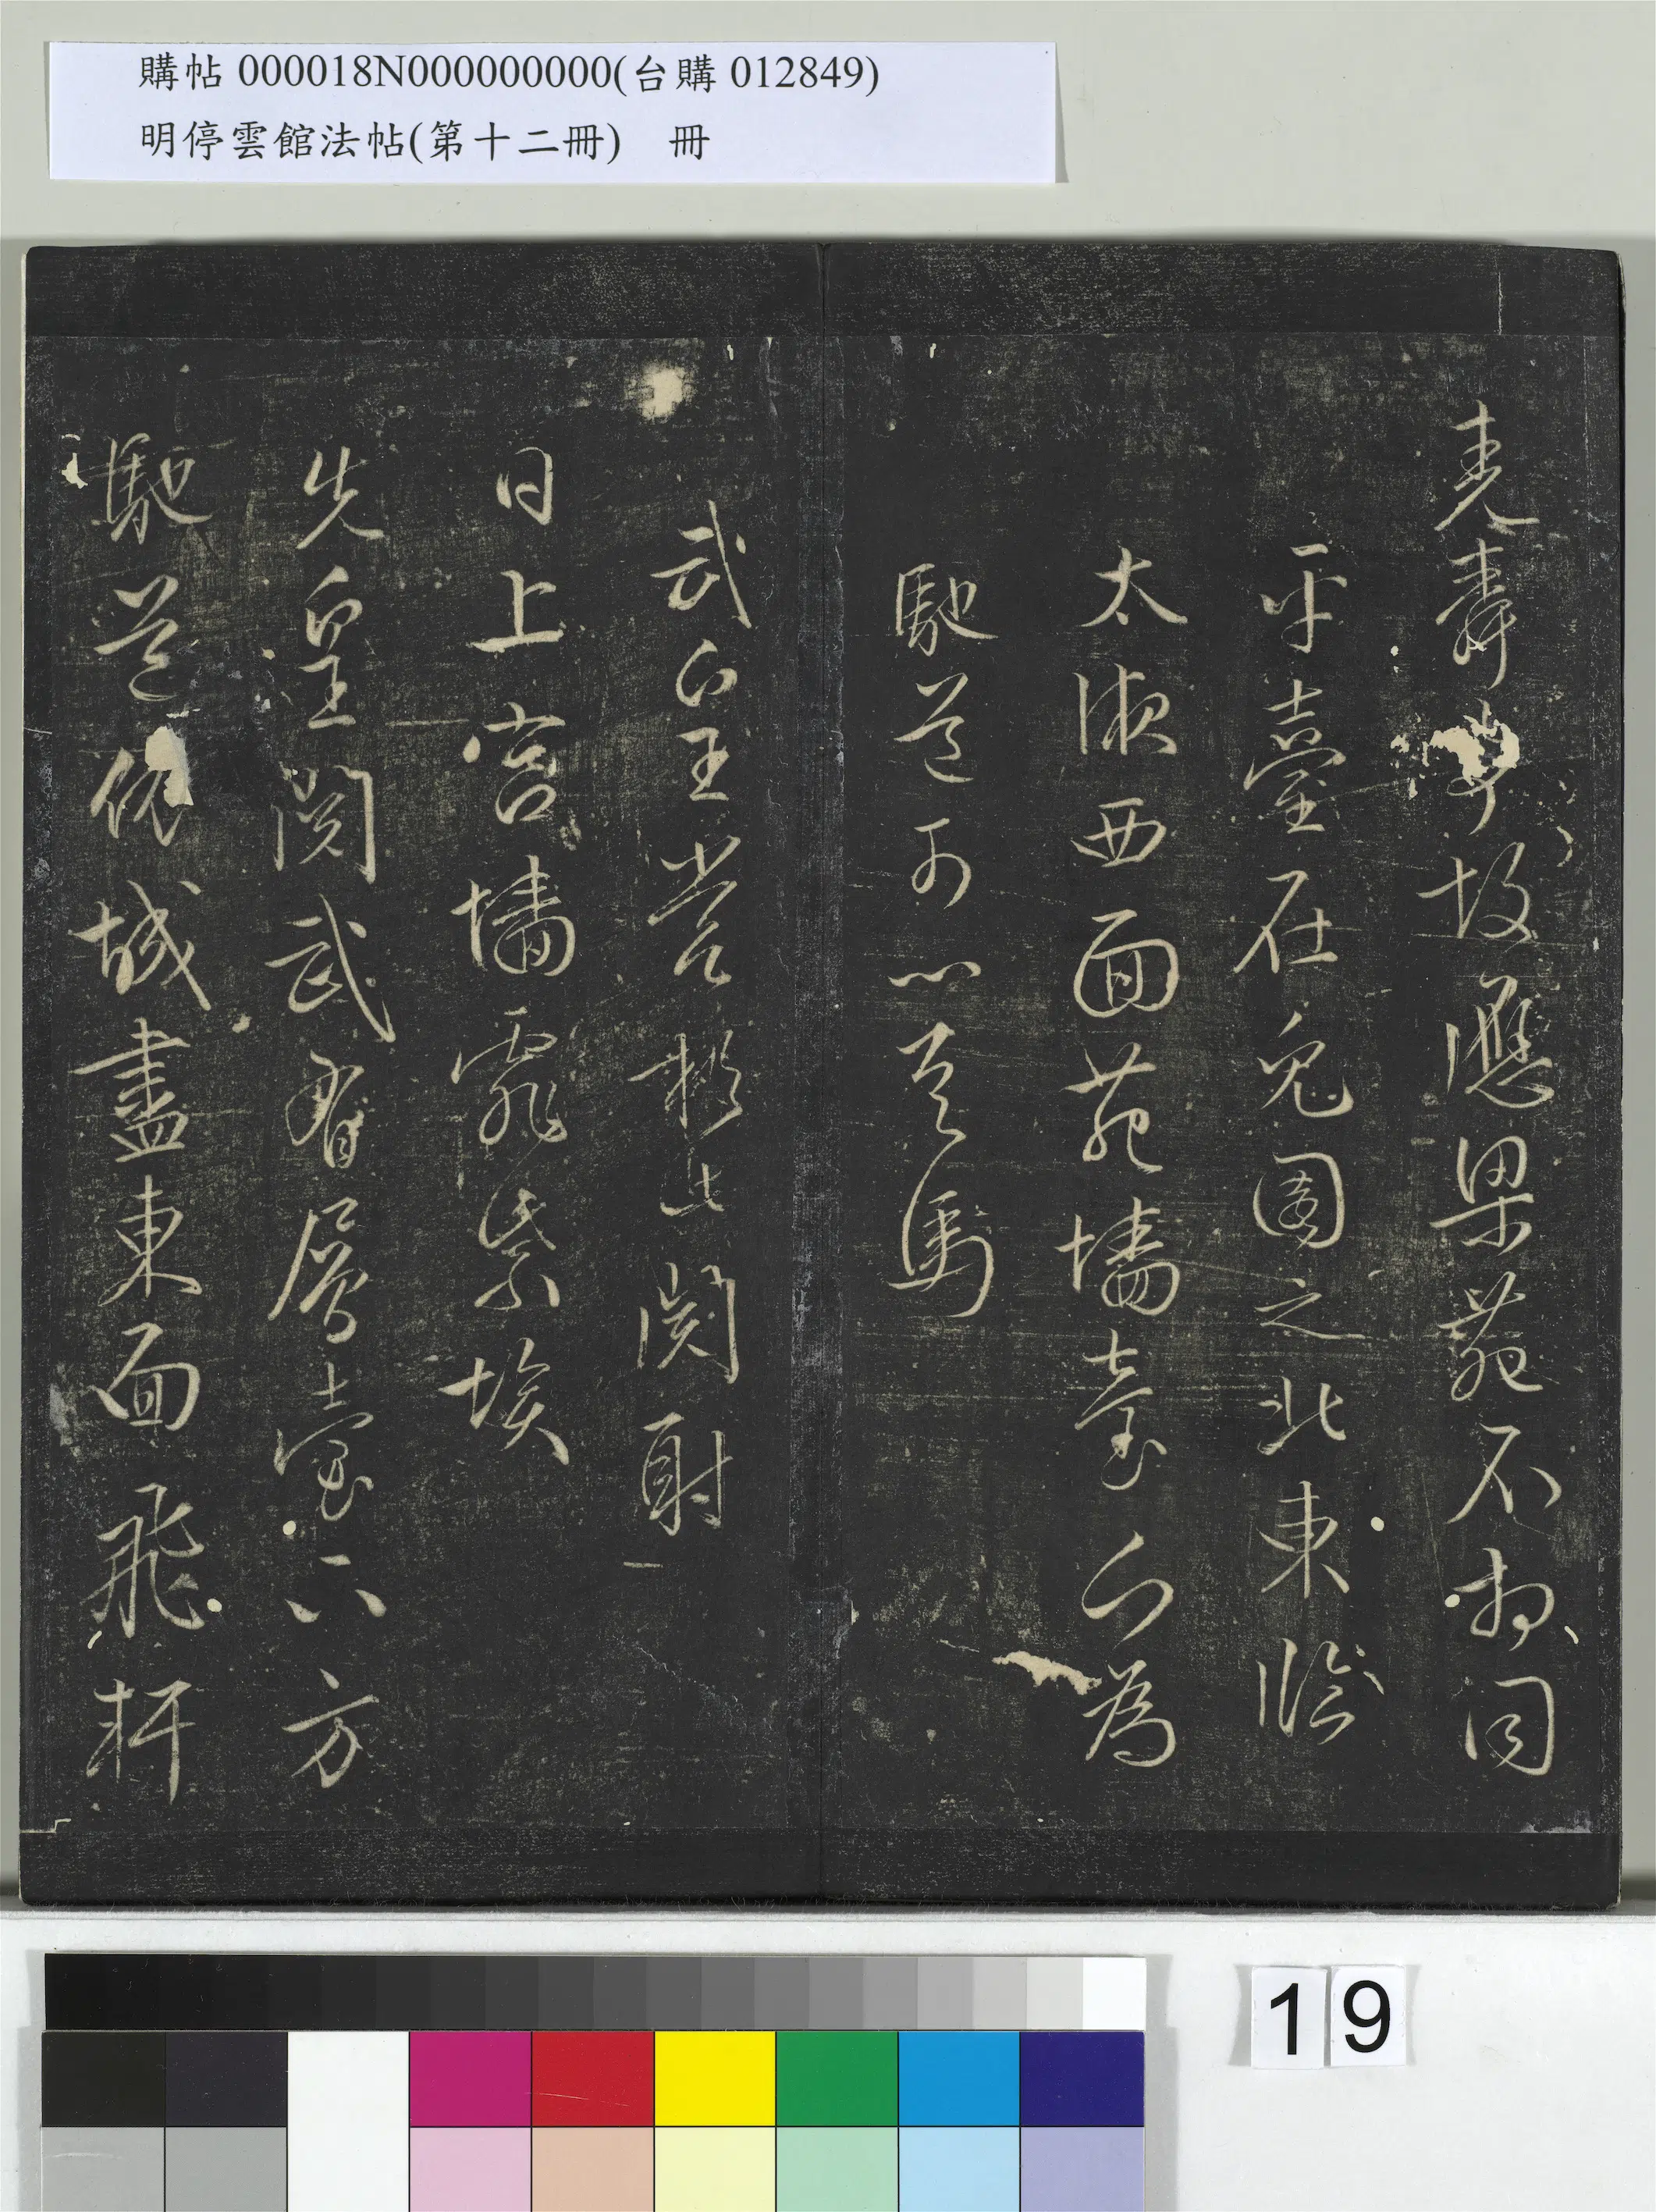 購帖000018N000000000(台購012849)
明停雲館法帖(第十二冊) 冊
堯舜故應梁苑不相同
平臺在兔園之北東臨
太液西面苑墻臺下為
馳道可以走馬
武皇嘗於此閱射
日上宮墻霏紫埃
先皇閱武有層臺下方
馳道依城盡東面飛軒
19